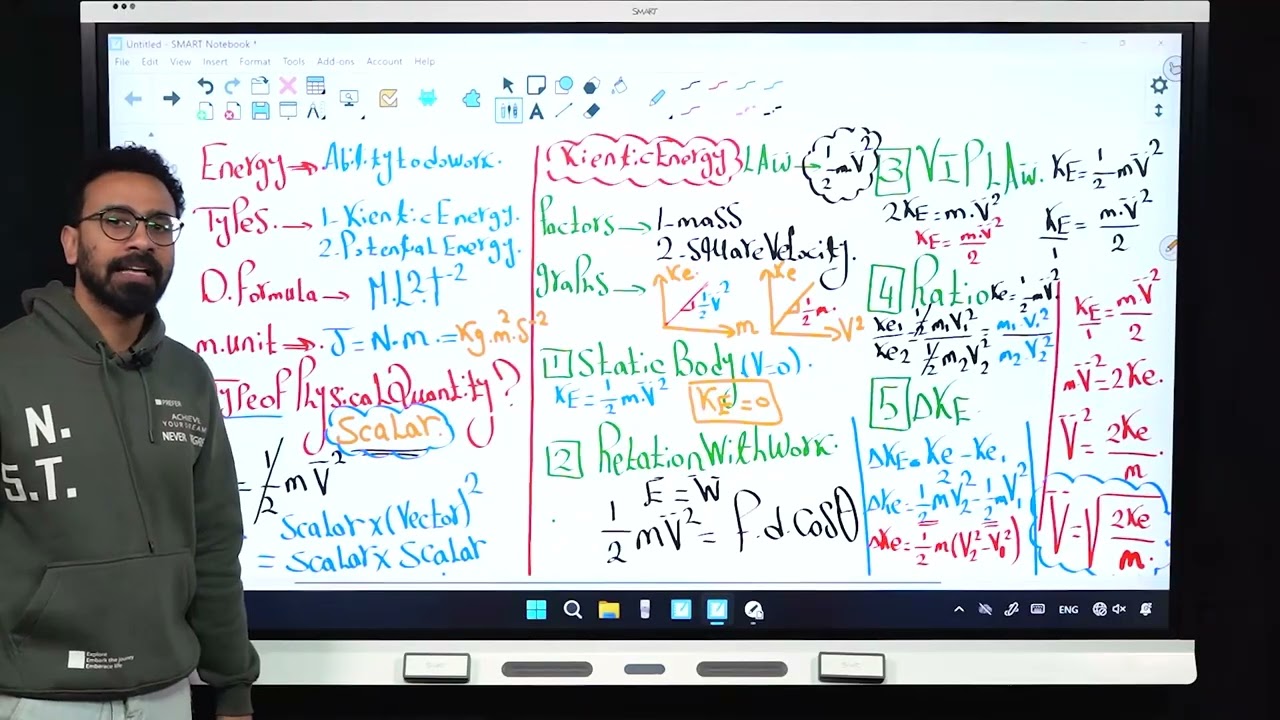 SMART
Untitled - SMART Notebook *
File Edit View Insert Format Tools Add-ons Account Help
Energy → Ability to do work.
Types. → 1- Kientic Energy.
2. Potential Energy.
D. formula → M.L2.t-2
m.unit → J = N.m. = Kg.m².S-2
Type of Physical Quantity?
Scalar.
= 1/2 m V²
Scalar x (Vector)²
= Scalar x Scalar
Kientic Energy LAw → 1/2 m V²
factors → 1-mass
2-Square Velocity.
graphs → Ke 1/2 V² m Ke 1/2 m. V²
1 Static Body (V=0).
KE = 1/2 m.V² KE = 0
2 Relation With Work.
E = W
1/2 mV² = f.d.Cosθ
3 VIP LAw.
2KE = m.V²
KE = m.V²/2
KE = 1/2 mV²
KE/1 = m.V²/2
4 Ratio Ke = 1/2 mV²
Ke1/Ke2 = 1/2 m1V1²/1/2 m2V2² = m1.V1²/m2.V2²
5 ΔKE
ΔKE = Ke2 - Ke1
ΔKe = 1/2 mV2² - 1/2 mV1²
ΔKe = 1/2 m(V2² - V0²)
KE/1 = m.V²/2
mV² = 2Ke.
V² = 2Ke/m
V = √2Ke/m.
ENG
N.
S.T.
PREFER
ACHIEVE
YOUR DREAM
NEVER
Explore
Embark the journey
Embrace life